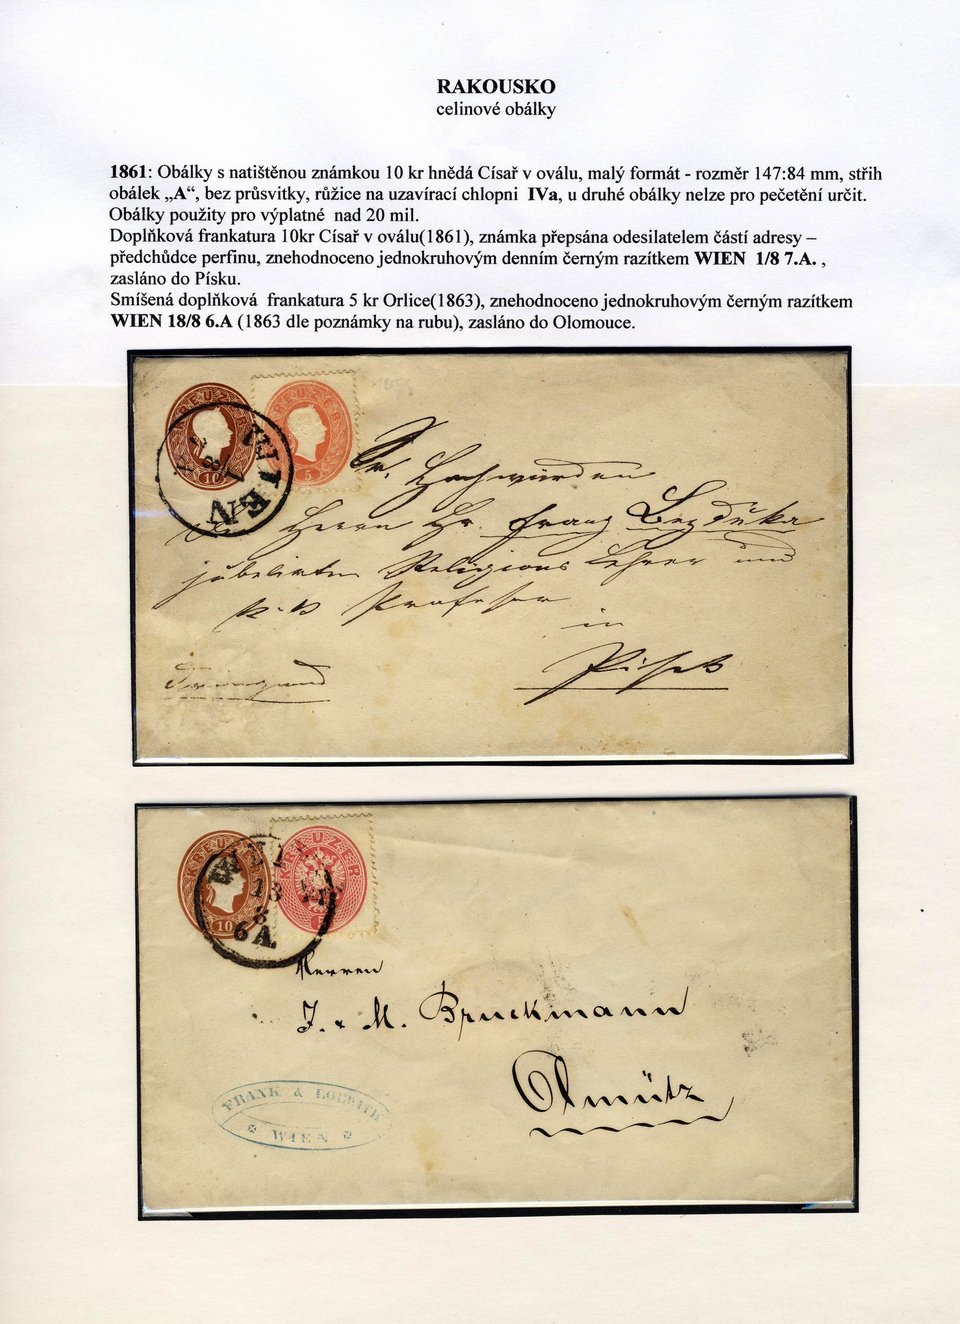 RAKOUSKO
celinové obálky
1861: Obálky s natištěnou známkou 10 kr hnědá Císař v oválu, malý formát - rozměr 147:84 mm, střih
obálek „A“, bez průsvitky, růžice na uzavírací chlopni IVa, u druhé obálky nelze pro pečetění určit.
Obálky použity pro výplatné nad 20 mil.
Doplňková frankatura 10kr Císař v oválu(1861), známka přepsána odesilatelem částí adresy –
předchůdce perfinu, znehodnoceno jednokruhovým denním černým razítkem WIEN 1/8 7.A. ,
zasláno do Písku.
Smíšená doplňková frankatura 5 kr Orlice(1863), znehodnoceno jednokruhovým černým razítkem
WIEN 18/8 6.A (1863 dle poznámky na rubu), zasláno do Olomouce.
10
5
WIEN
1
8
Sr. Hochwürden
Herrn Hr. Franz Bezdĕka
jubelirten Religions Lehrer und
k. k. Professor
in
Pisek
KREUZER
10
WIEN
18
8
6 A.
Herren
J. & M. Bruckmann
Olmütz
FRANK & LOEWITH
WIEN